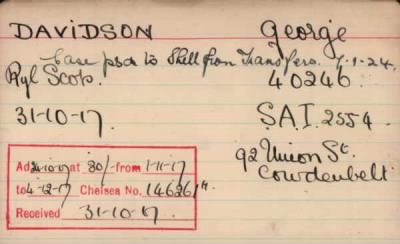 DAVIDSON George
Case psd to Skell from Transfers. 7-1-24.
Ryl Scots. 40246.
31-10-17. SAI. 2554.
92 Union St.
Cowdenbelt
Ad at 30/- from 1-11-17
to 4-12-17 Chelsea No. 146261
Received 31-10-17.